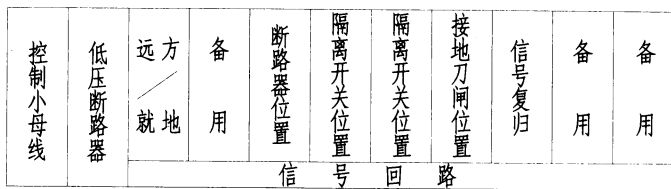 控制小母线
低压断路器
远方/就地
备用
断路器位置
隔离开关位置
隔离开关位置
接地刀闸位置
信号复归
备用
备用
信号回路